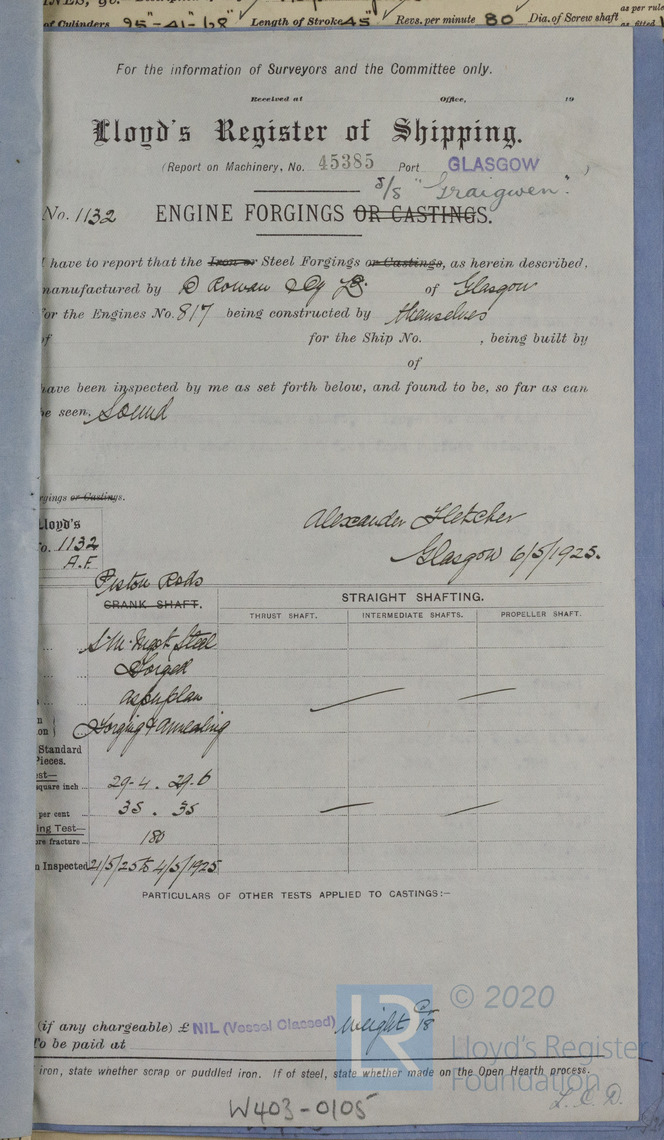 of Cylinders 25"-41"-68" Length of Stroke 45" Revs. per minute 80 Dia. of Screw shaft as per rule
For the information of Surveyors and the Committee only.
Received at Office, 19
Lloyd's Register of Shipping.
(Report on Machinery, No. 45385 Port GLASGOW )
S/S "Graigwen".
No. 1132 ENGINE FORGINGS OR CASTINGS.
I have to report that the Iron or Steel Forgings or Castings, as herein described,
manufactured by D Rowan & Cy Ld. of Glasgow
for the Engines No. 817 being constructed by themselves
of for the Ship No. , being built by
of
have been inspected by me as set forth below, and found to be, so far as can
be seen, Sound
rgings or Castings.
Lloyd's
No. 1132
A.F.
Alexander Fletcher
Glasgow 6/5/1925.
Piston Rods
CRANK SHAFT.
STRAIGHT SHAFTING.
THRUST SHAFT. INTERMEDIATE SHAFTS. PROPELLER SHAFT.
S.M. Ingot Steel
Forged
as per plan
Forging & Annealing
Standard
Pieces.
est—
square inch ... 29-4 . 29.6
per cent ... 35 . 35
ing Test—
ore fracture ... 180
n Inspected 4/5/1925
PARTICULARS OF OTHER TESTS APPLIED TO CASTINGS:—
(if any chargeable) £ NIL (Vessel Classed) Weight 18
To be paid at
iron, state whether scrap or puddled iron. If of steel, state whether made on the Open Hearth process.
© 2020
LR
Lloyd's Register
Foundation
W403-0105